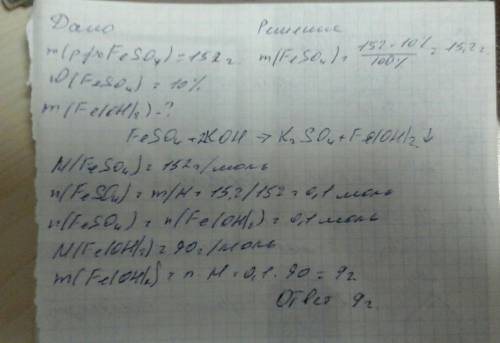 Дано Решение
m(р-ра FeSO₄) = 152 г. m(FeSO₄) = 152 · 10% / 100% = 15,2 г.
ω(FeSO₄) = 10%
m(Fe(OH)₂) - ?
FeSO₄ + 2KOH → K₂SO₄ + Fe(OH)₂↓
M(FeSO₄) = 152 г/моль
n(FeSO₄) = m/M = 15,2/152 = 0,1 моль
n(FeSO₄) = n(Fe(OH)₂) = 0,1 моль
M(Fe(OH)₂) = 90 г/моль
m(Fe(OH)₂) = n · M = 0,1 · 90 = 9 г.
Ответ 9 г.